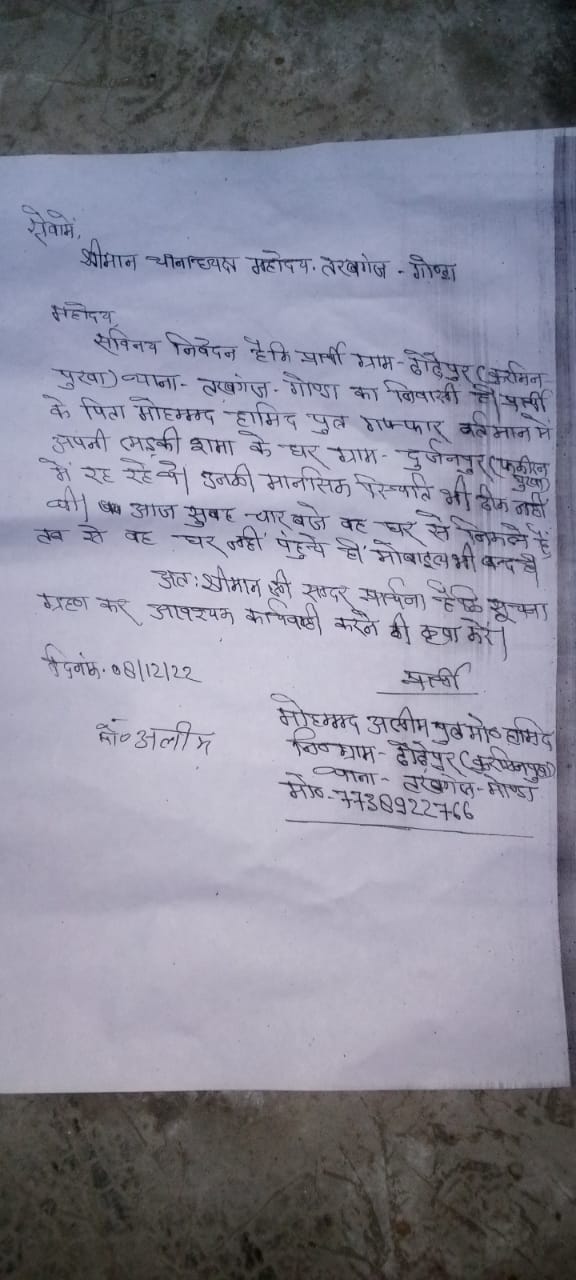 सेवामें,
श्रीमान थानाध्यक्ष महोदय. तरबगंज - गोण्डा
महोदय,
सविनय निवेदन हैकि प्रार्थी ग्राम - ढोढ़ेपुर (कुर्मिन
पुरवा) थाना - तरबगंज - गोण्डा का निवासी है। प्रार्थी
के पिता मोहम्मद हामिद पुत्र गफ्फार वर्तमान में
अपनी लड़की शमा के घर ग्राम - दुर्जनपुर (फकीरन
पुरवा)
में रह रहे थे। उनकी मानसिक स्थिति भी ठीक नहीं
थी। आज सुबह चार बजे वह घर से निकले हैं
तब से वह घर नहीं पंहुचे हैं मोबाइल भी बन्द है।
अत: श्रीमान जी सादर प्रार्थना हैकि सूचना
ग्रहण कर आवश्यक कार्यवाही करने की कृपा करें।
दिनांक. 08/12/22
प्रार्थी
मो० अलीम
मोहम्मद अलीम पुत्र मो० हामिद
नि० ग्राम - ढोढ़ेपुर (कुर्मिनपुरवा)
थाना - तरबगंज - गोण्डा
मो० - 7738922766